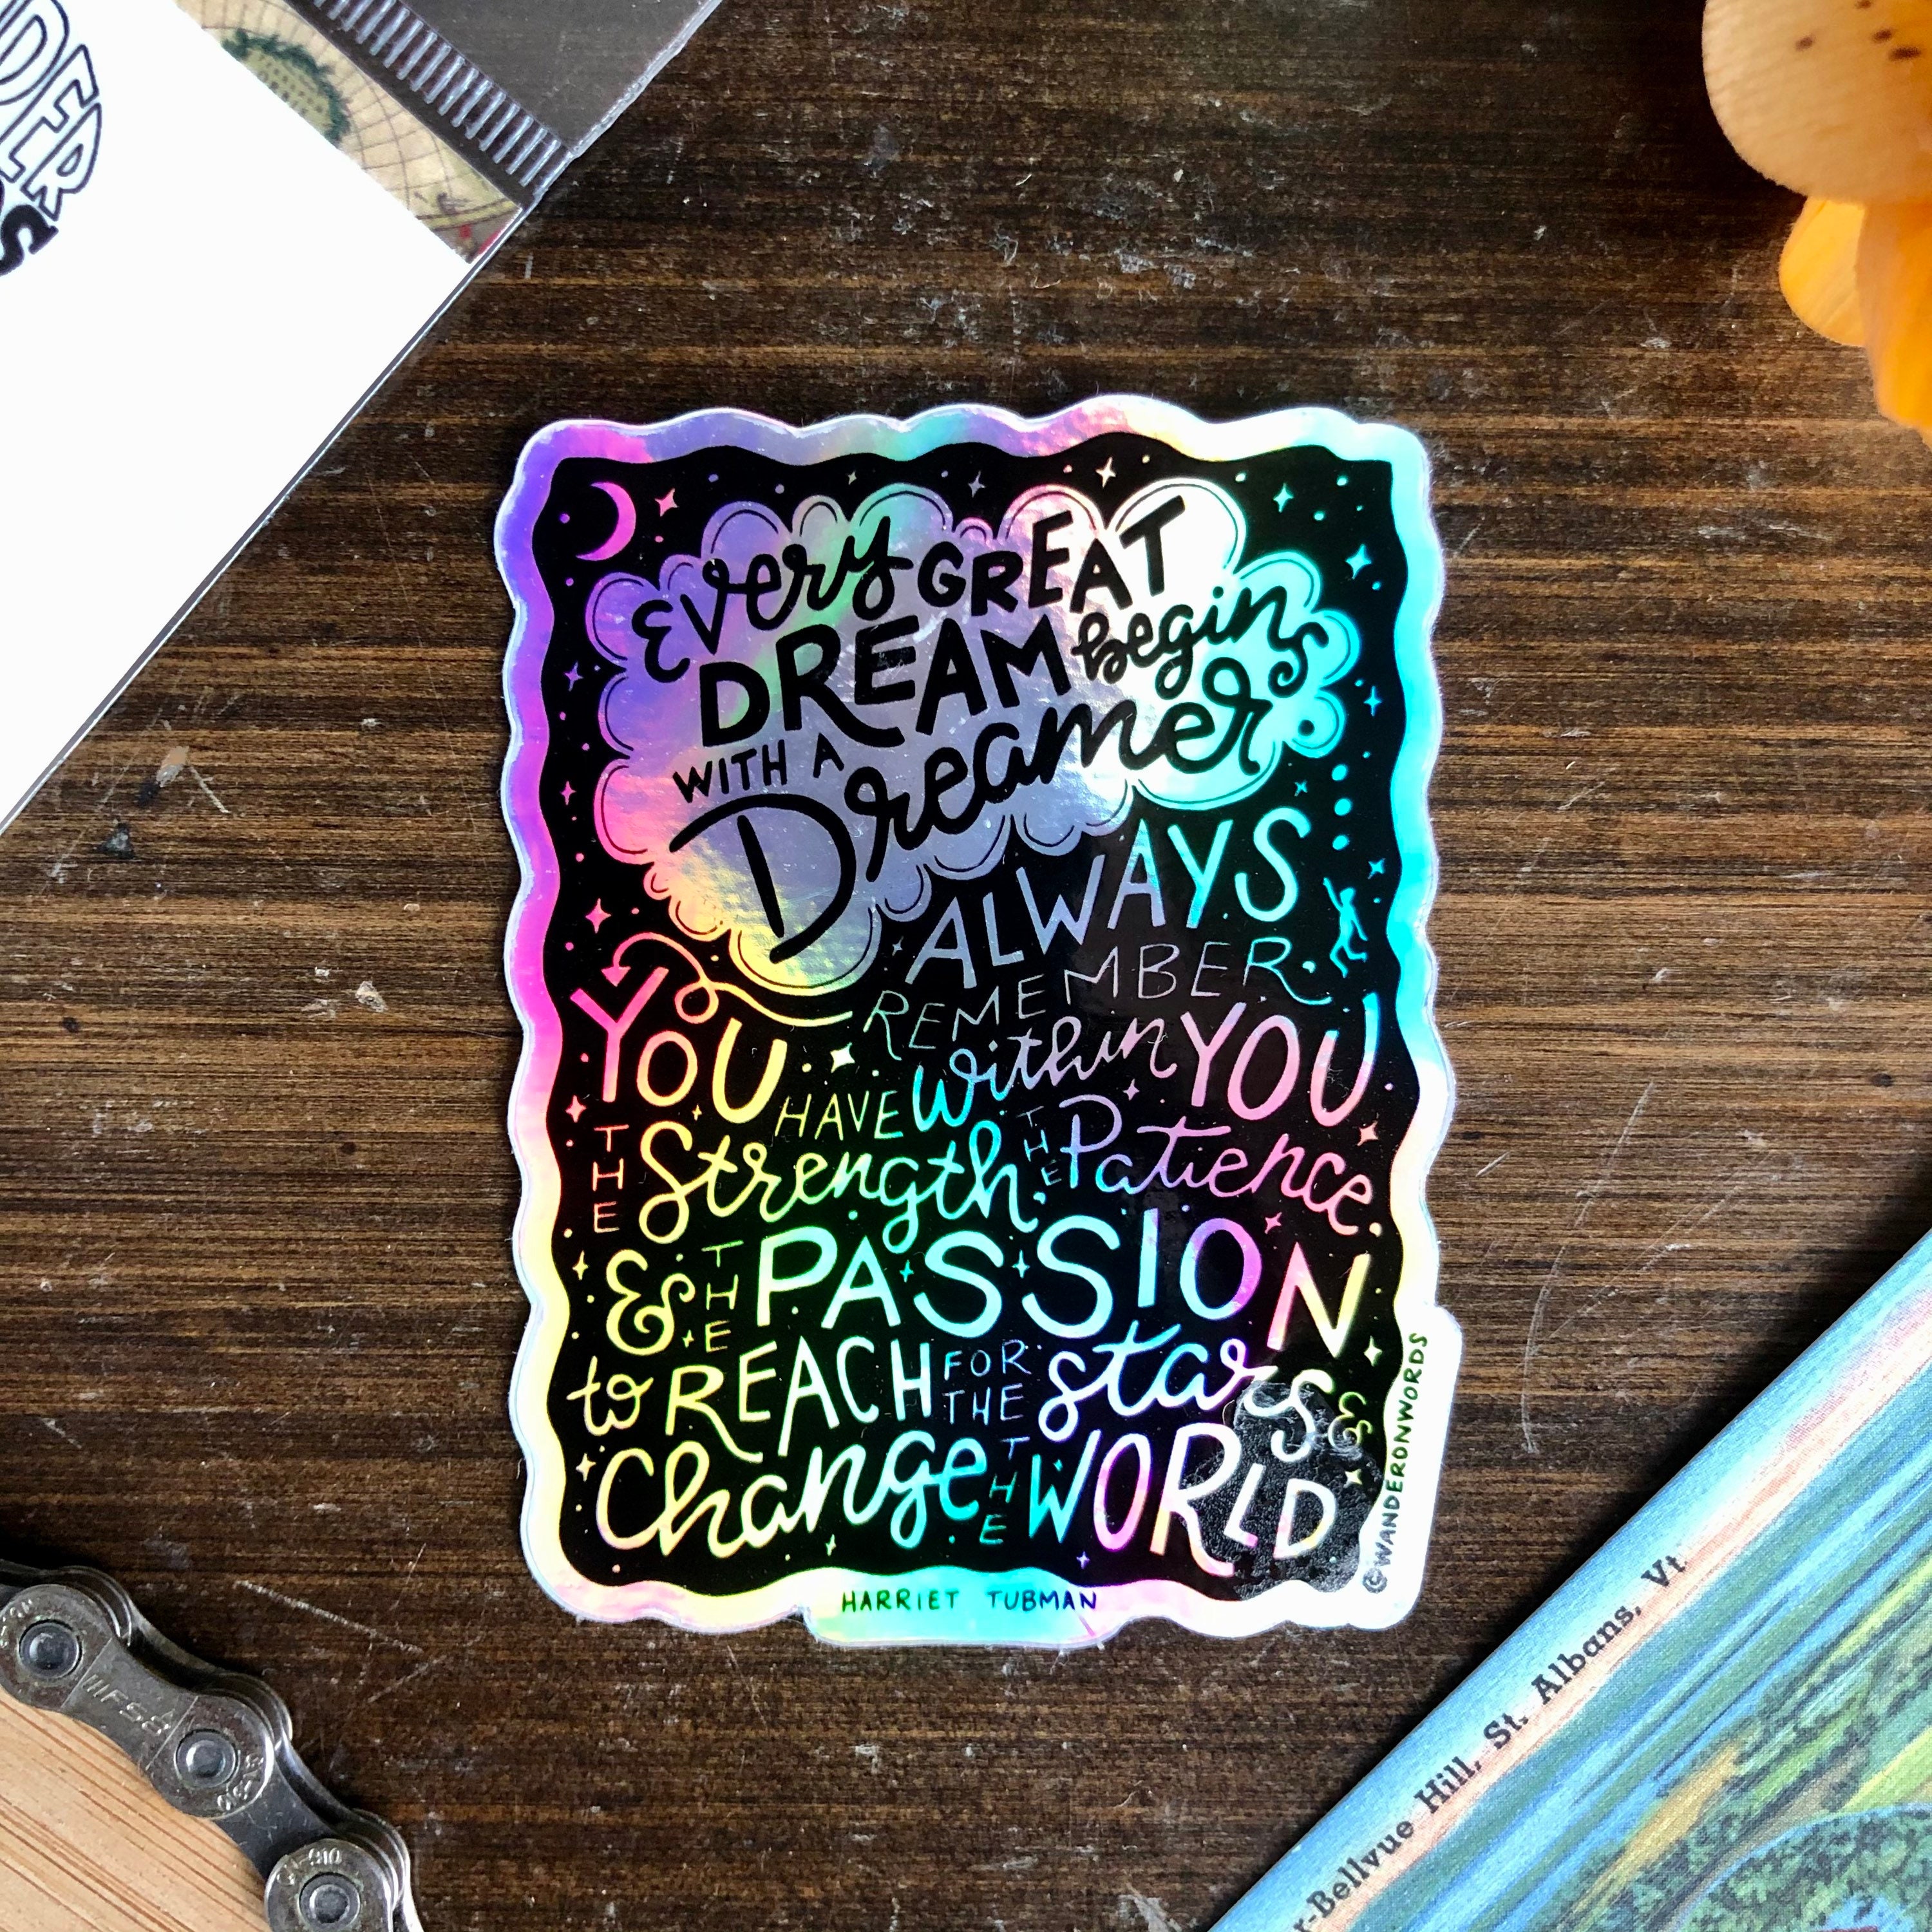 Every GREAT
DREAM begins
WITH A
Dreamer
ALWAYS
REMEMBER
YOU HAVE within YOU
THE Strength. THE Patience.
& THE PASSION
to REACH FOR THE stars &
Change THE WORLD
HARRIET TUBMAN
©WANDERONWORDS
Bellvue Hill, St. Albans, Vt